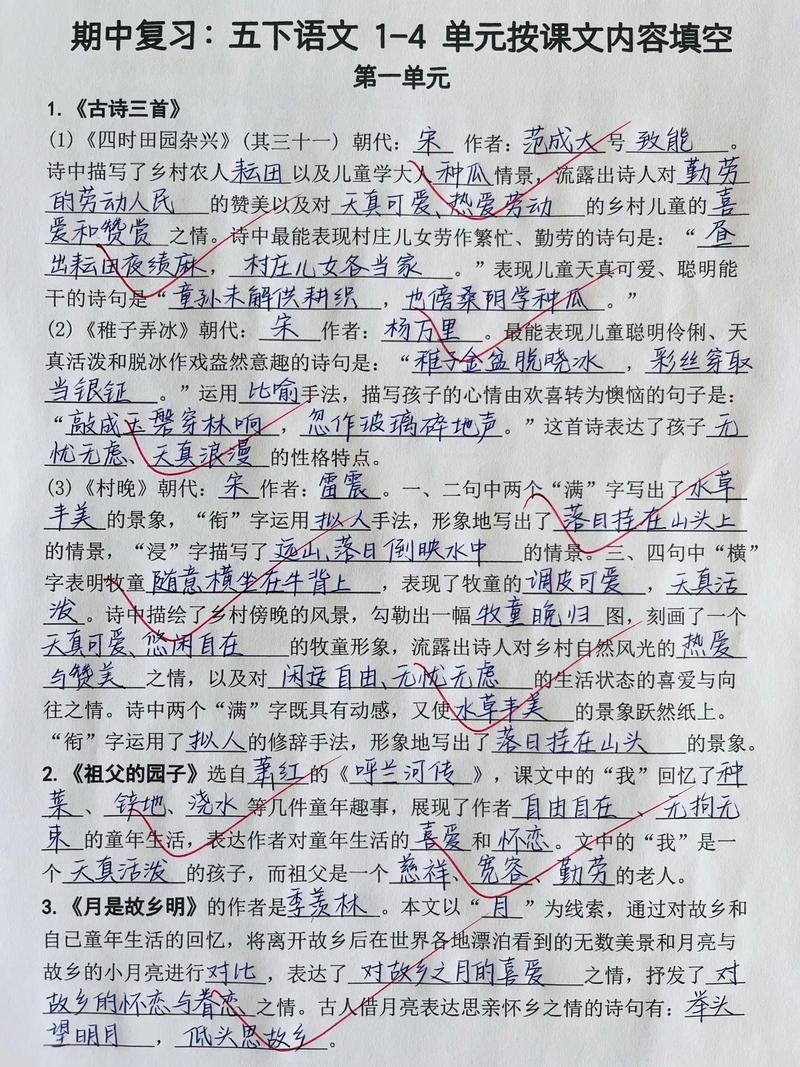 期中复习：五下语文 1-4 单元按课文内容填空
第一单元
1.《古诗三首》
(1)《四时田园杂兴》(其三十一) 朝代：宋 作者：范成大 号 致能 。
诗中描写了乡村农人耘田以及儿童学大人种瓜情景，流露出诗人对 勤劳
的劳动人民 的赞美以及对 天真可爱、热爱劳动 的乡村儿童的 喜
爱和赞赏 之情。诗中最能表现村庄儿女劳作繁忙、勤劳的诗句是：“ 昼
出耘田夜绩麻，村庄儿女各当家 。”表现儿童天真可爱、聪明能
干的诗句是“童孙未解供耕织 ，也傍桑阴学种瓜 。”
(2)《稚子弄冰》朝代：宋 作者：杨万里 。最能表现儿童聪明伶俐、天
真活泼和脱冰作戏盎然意趣的诗句是：“稚子金盆脱晓冰 ，彩丝穿取
当银钲 。”运用 比喻手法，描写孩子的心情由欢喜转为懊恼的句子是：
“敲成玉磬穿林响 ，忽作玻璃碎地声。”这首诗表达了孩子 无
忧无虑、天真浪漫 的性格特点。
(3)《村晚》朝代：宋 作者：雷震 。一、二句中两个“满”字写出了水草
丰美 的景象，“衔”字运用拟人手法，形象地写出了 落日挂在山头上
的情景，“浸”字描写了 远山、落日倒映水中 的情景。三、四句中“横”
字表明牧童 随意横坐在牛背上 ，表现了牧童的 调皮可爱 ，天真活
泼。诗中描绘了乡村傍晚的风景，勾勒出一幅 牧童晚归 图，刻画了一个
天真可爱、悠闲自在 的牧童形象，流露出诗人对乡村自然风光的 热爱
与赞美 之情，以及对 闲适自由、无忧无虑 的生活状态的喜爱与向
往之情。诗中两个“满”字既具有动感，又使水草丰美 的景象跃然纸上。
“衔”字运用了拟人的修辞手法，形象地写出了落日挂在山头 的景象。
2.《祖父的园子》选自 萧红 的《 呼兰河传 》，课文中的“我”回忆了种
菜、铲地、浇水 等几件童年趣事，展现了作者 自由自在 、无拘无
束 的童年生活，表达作者对童年生活的 喜爱 和 怀恋 。文中的“我”是一
个 天真活泼 的孩子，而祖父是一个 慈祥、宽容、勤劳的老人。
3.《月是故乡明》的作者是季羡林 。本文以“ 月 ”为线索，通过对故乡和
自己童年生活的回忆，将离开故乡后在世界各地漂泊看到的无数美景和月亮与
故乡的小月亮进行对比 ，表达了 对故乡之月的喜爱 之情，抒发了 对
故乡的怀恋与眷恋 之情。古人借月亮表达思亲怀乡之情的诗句有：举头
望明月 ，低头思故乡 。